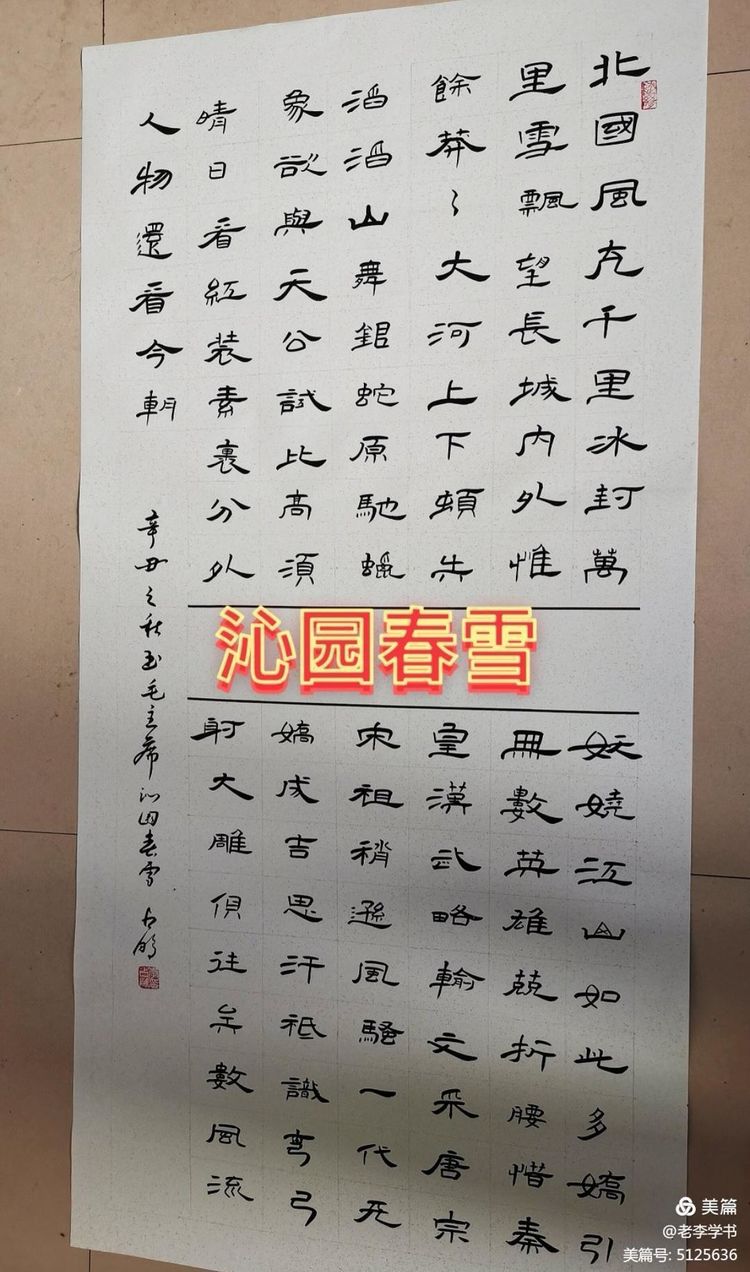 北國風光千里冰封萬
里雪飄望長城內外惟
餘莽々大河上下頓失
滔滔山舞銀蛇原馳蠟
象欲與天公試比高須
晴日看紅裝素裹分外
沁园春雪
妖嬈江山如此多嬌引
無數英雄競折腰惜秦
皇漢武略輸文采唐宗
宋祖稍遜風騷一代天
嬌成吉思汗祗識彎弓
射大雕俱往矣數風流
人物還看今朝
辛丑之秋毛主席沁园春雪
美篇
@老李学书
美篇号: 5125636